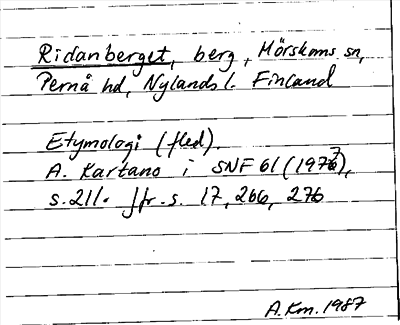 Ridanberget, berg, Mörskoms sn,
Pernå hd, Nylands l. Finland
Etymologi (fled).
A. Kartano i SNF 61 (1977),
s. 211. Jfr. s. 17, 266, 276
A.Km. 1987